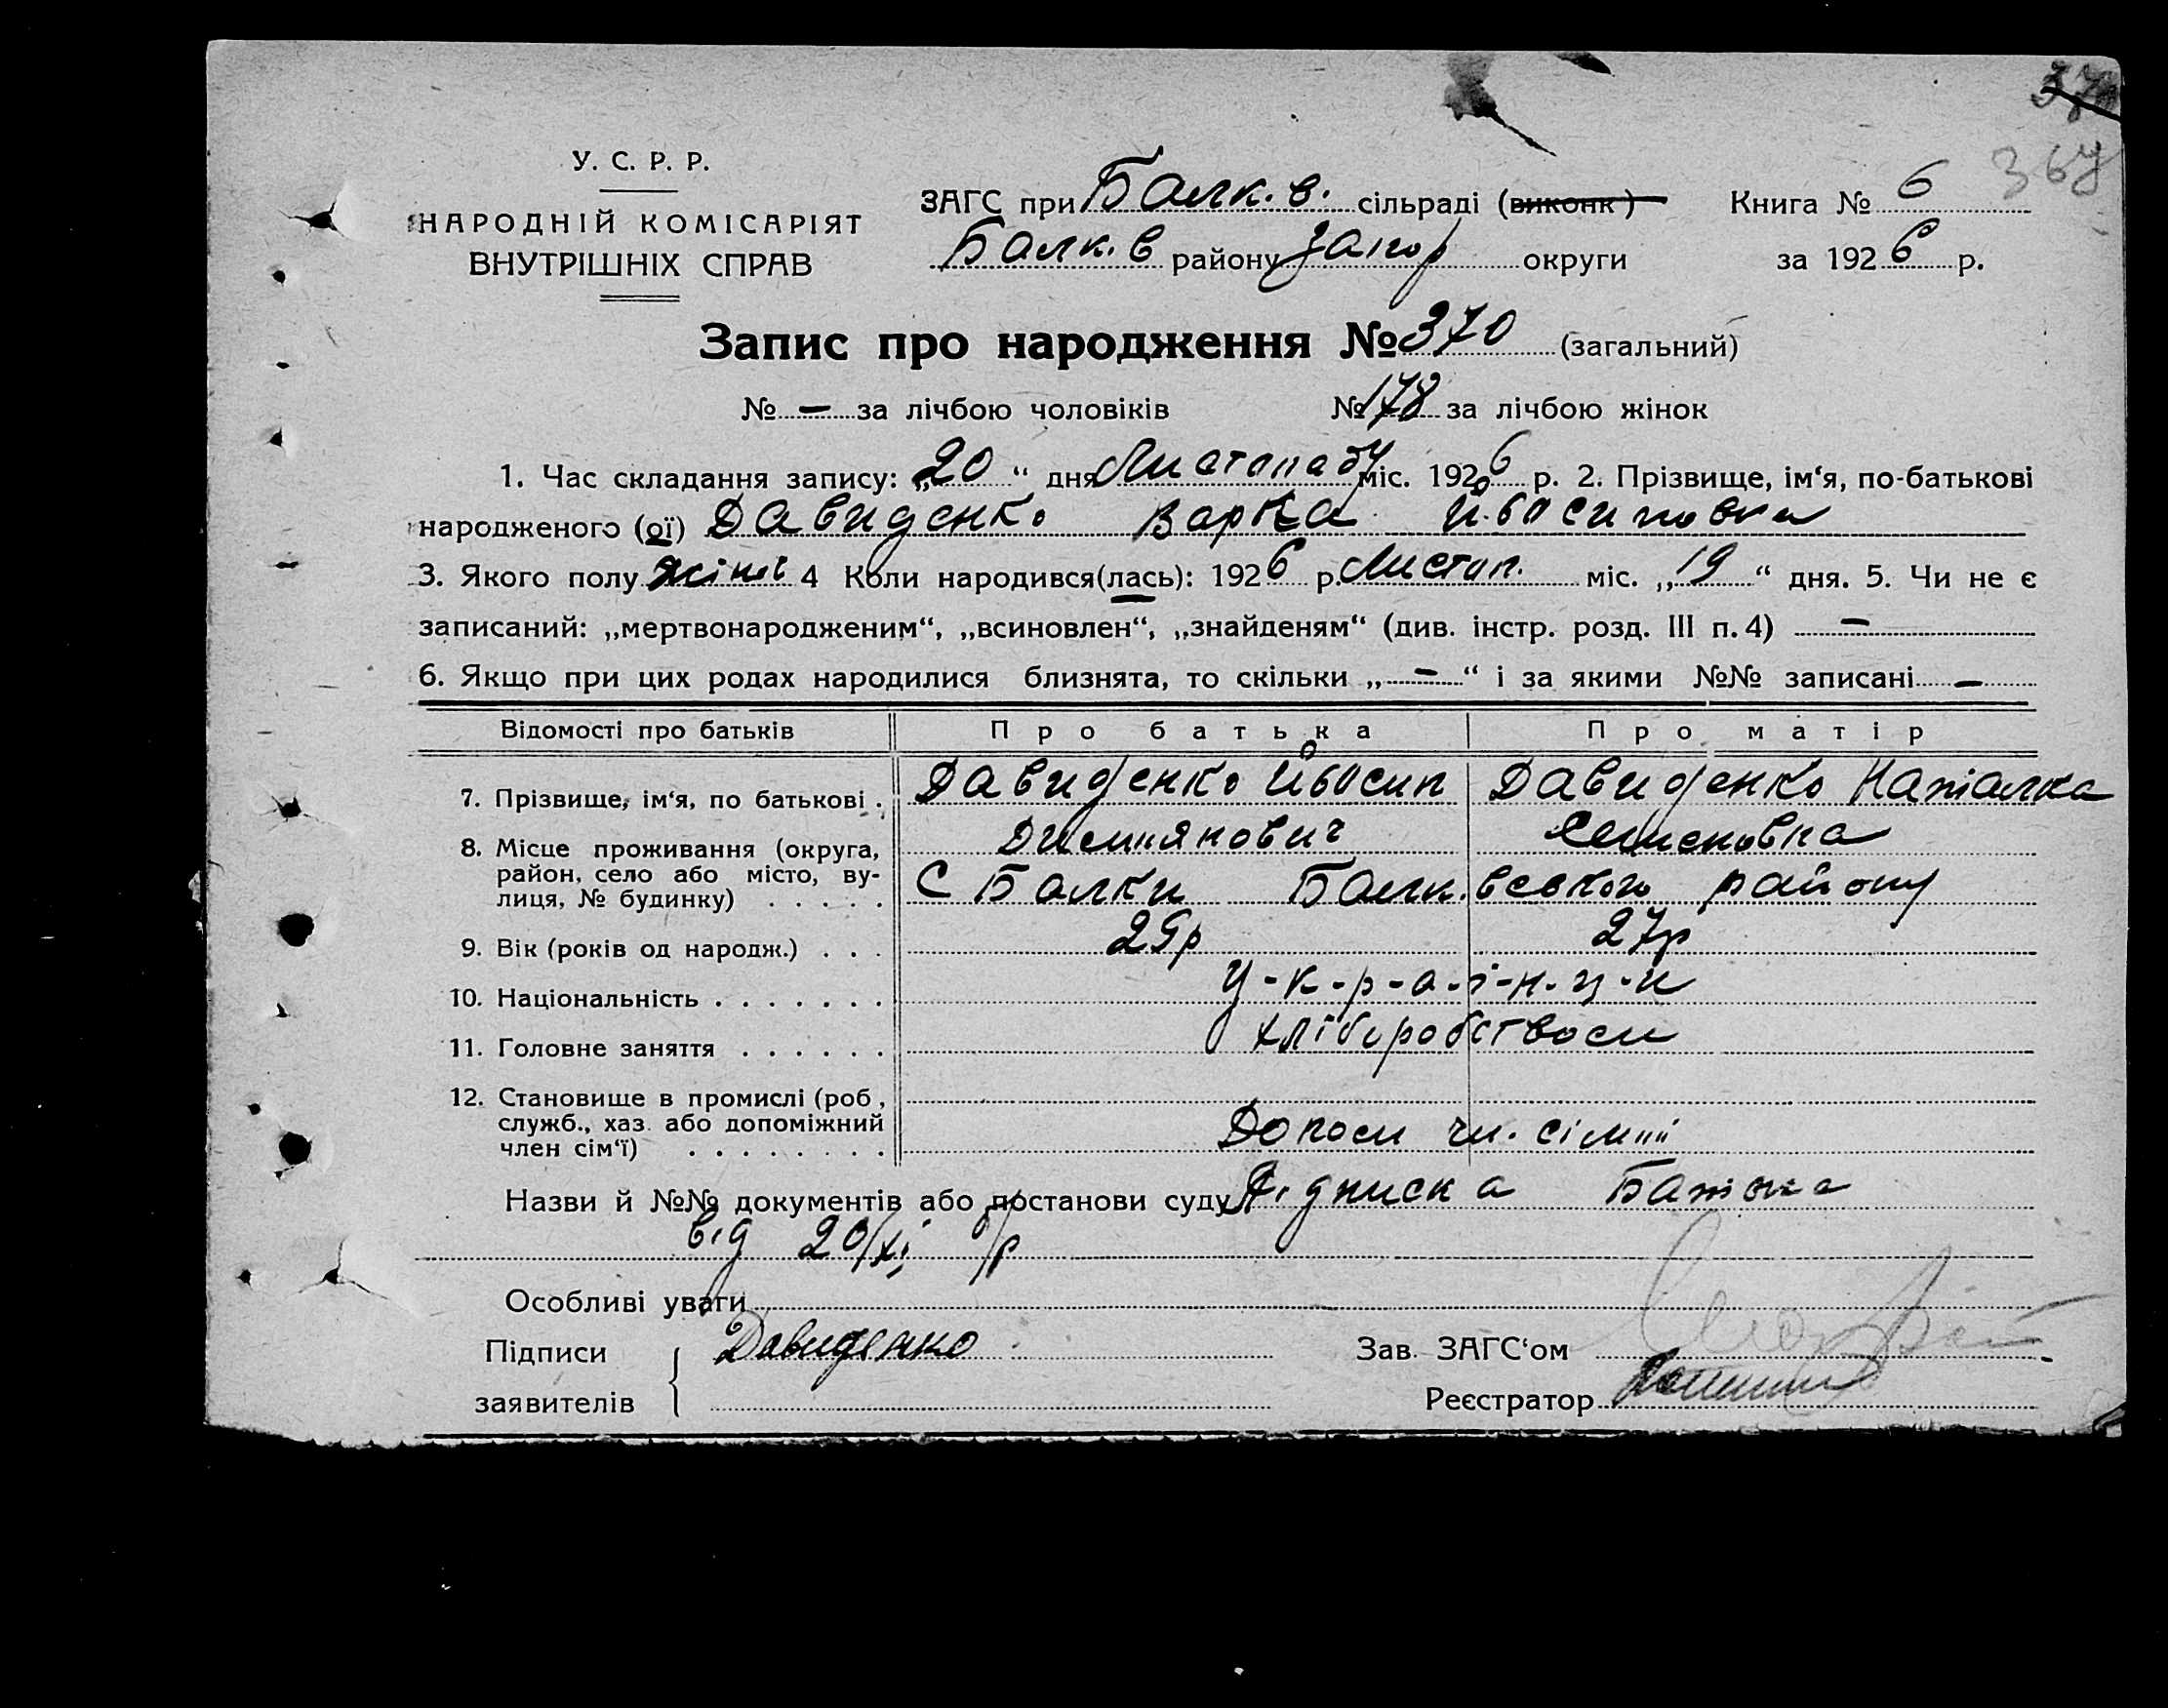 37
367
У. С. Р. Р.
НАРОДНІЙ КОМІСАРІЯТ
ВНУТРІШНІХ СПРАВ
ЗАГС при Балк. в. сільраді (виконк) Книга № 6
Балк. в району Запор округи за 1926 р.
Запис про народження № 370 (загальний)
№ — за лічбою чоловіків № 178 за лічбою жінок
1. Час складання запису: „20“ дня Листопаду міс. 1926 р. 2. Прізвище, ім‘я, по-батькові
народженого (ої) Давиденко Варка
3. Якого полу жіноч 4 Коли народився(лась): 1926 р. Листоп. міс. „19“ дня. 5. Чи не є
записаний: „мертвонародженим“, „всиновлен“, „знайденям“ (див. інстр. розд. III п. 4) —
6. Якщо при цих родах народилися близнята, то скільки „—“ і за якими №№ записані —
Відомості про батьків Про батька Про матір
7. Прізвище, ім‘я, по батькові . Давиденко Давиденко Наталка
8. Місце проживання (округа, Семеновна
район, село або місто, ву-
лиця, № будинку) . . . . . С Балки Балк.вського району
9. Вік (років од народж.) . . . 29р 27р
10. Національність . . . . . . . У-к-р-а-ї-н-ц-и
11. Головне заняття . . . . . . хліборобством
12. Становище в промислі (роб,
служб., хаз. або допоміжний
член сім‘ї) . . . . . . . . Допом чл. сімиї
Назви й №№ документів або постанови суду Підписка Батька
від 20/XI
Особливі уваги
Підписи Давиденко Зав. ЗАГС‘ом
заявителів Реєстратор